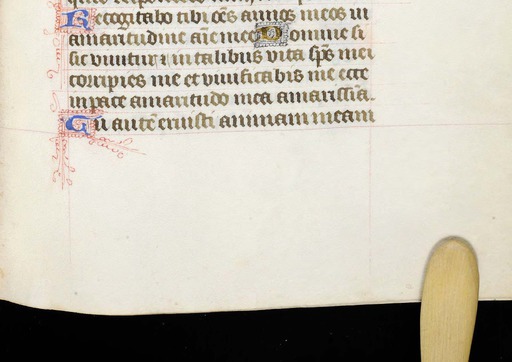 Recogitabo tibi oēs annos meos in
amaritudine aīe mee Domine si
sic vivitur ⁊ in talibus vita sp̄s mei
corripies me et vivificabis me ecce
in pace amaritudo mea amarissīa.
Tu autē eruisti animam meam